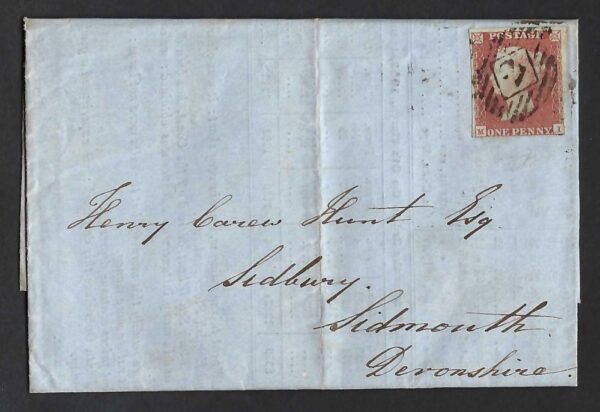 POSTAGE
M I
ONE PENNY
Henry Carew Hunt Esq
Sidbury.
Sidmouth.
Devonshire.